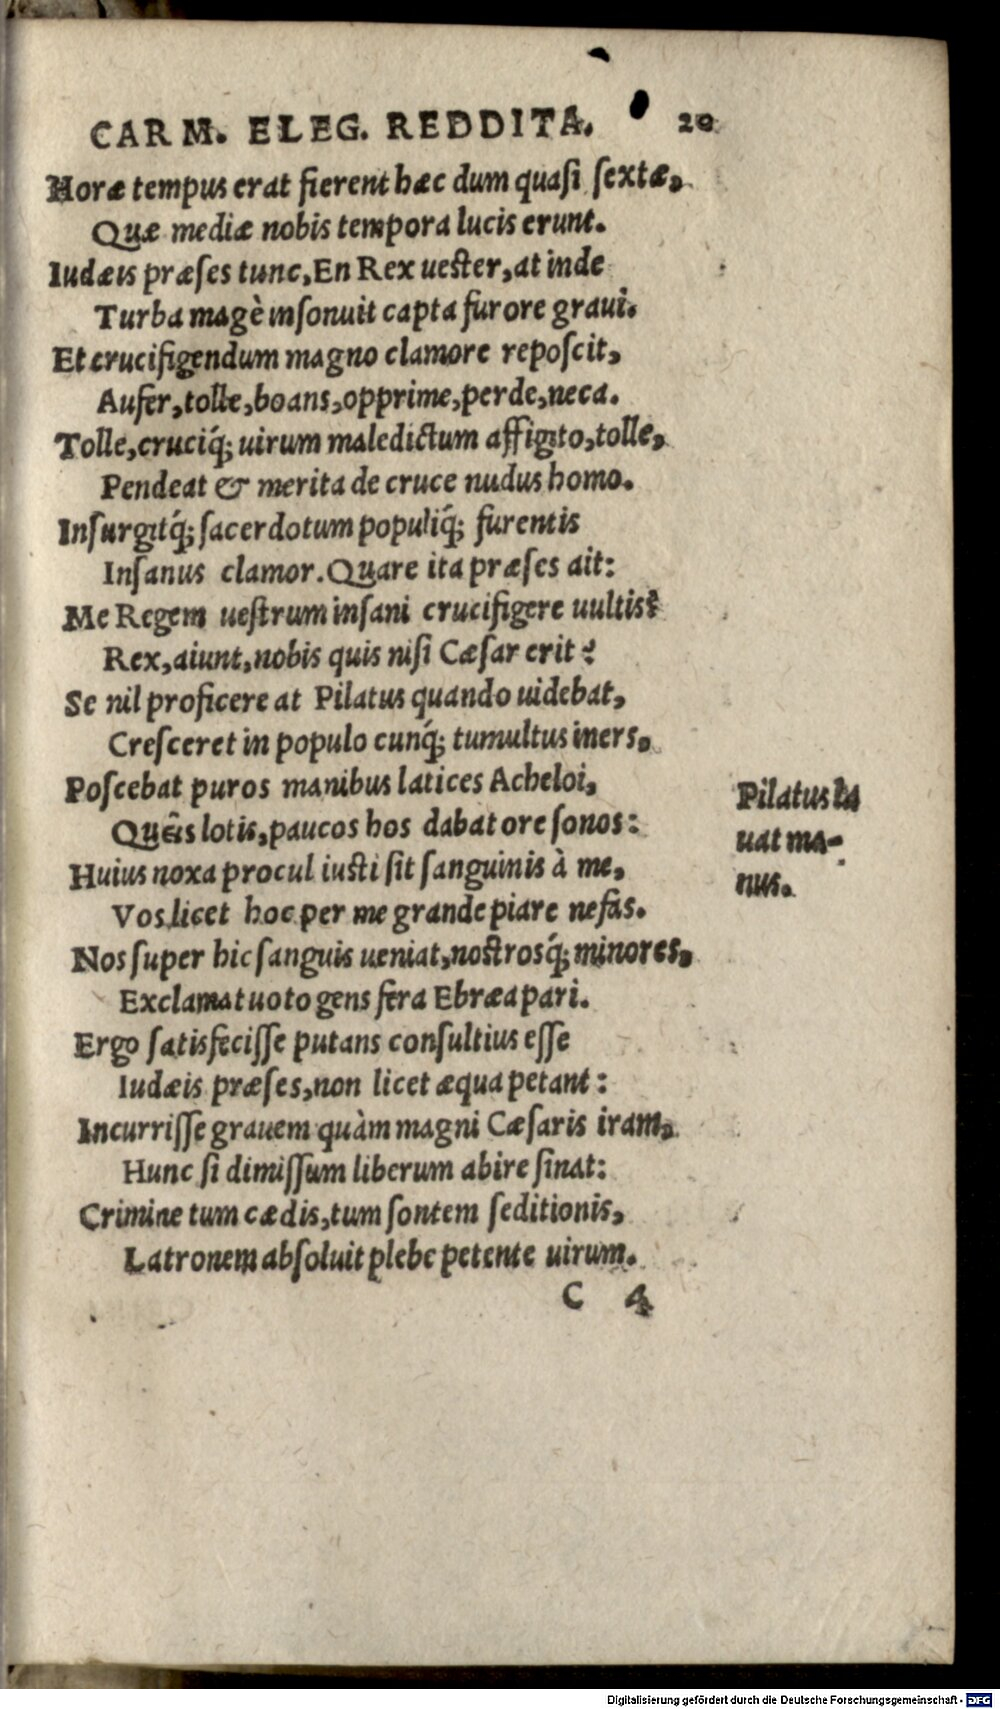 CARM. ELEG. REDDITA. 20
Horæ tempus erat fierent hæc dum quasi sextæ,
Quæ mediæ nobis tempora lucis erunt.
Iudæis præses tunc, En Rex uester, at inde
Turba magè insonuit capta furore graui.
Et crucifigendum magno clamore reposcit,
Aufer, tolle, boans, opprime, perde, neca.
Tolle, cruciq́; uirum maledictum affigito, tolle,
Pendeat & merita de cruce nudus homo.
Insurgitq́; sacerdotum populiq́; furentis
Insanus clamor. Quare ita præses ait:
Me Regem uestrum insani crucifigere uultis?
Rex, aiunt, nobis quis nisi Cæsar erit?
Se nil proficere at Pilatus quando uidebat,
Cresceret in populo cunq́; tumultus iners,
Poscebat puros manibus latices Acheloi,
Quêis lotis, paucos hos dabat ore sonos:
Huius noxa procul iusti sit sanguinis à me,
Vos licet hoc per me grande piare nefas.
Nos super hic sanguis ueniat, nostrosq́; minores,
Exclamat uoto gens fera Ebræa pari.
Ergo satisfecisse putans consultius esse
Iudæis præses, non licet æqua petant:
Incurrisse grauem quàm magni Cæsaris iram,
Hunc si dimissum liberum abire sinat:
Crimine tum cædis, tum sontem seditionis,
Latronem absoluit plebe petente uirum.
C 4
Pilatus la
uat ma-
nus.
Digitalisierung gefördert durch die Deutsche Forschungsgemeinschaft - DFG